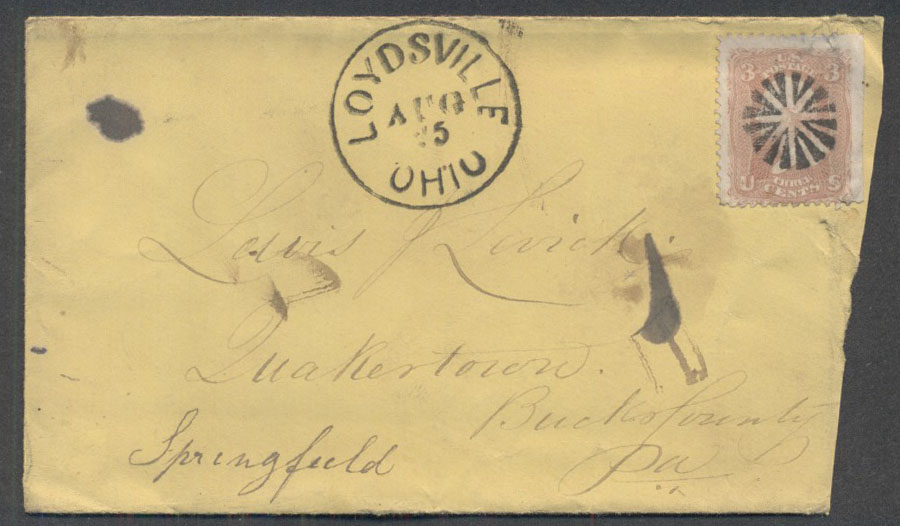 LOYDSVILLE
AUG
25
OHIO
3 U.S. POSTAGE 3
U THREE S
CENTS
Lewis J Levick.
Quakertown.
Bucks County
Pa
Springfield